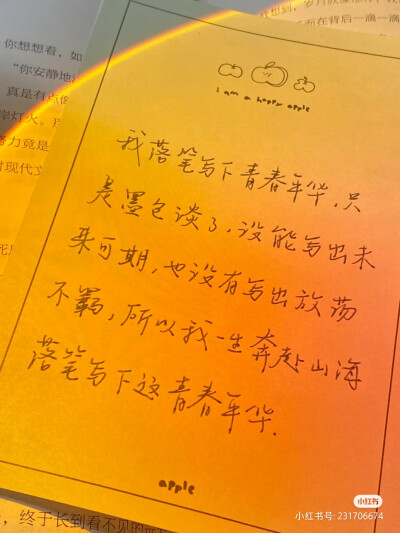 你想想看，如
“你安静地
真是有点
岸灯火。
努力竟是
对现代文
i am a happy apple
我落笔写下青春年华，只
是墨色谈了，没能写出未
来可期，也没有写出放荡
不羁，所以我一生奔赴山海
落笔写下这青春年华.
apple
，终于长到看不见的
小红书
小红书号: 231706674